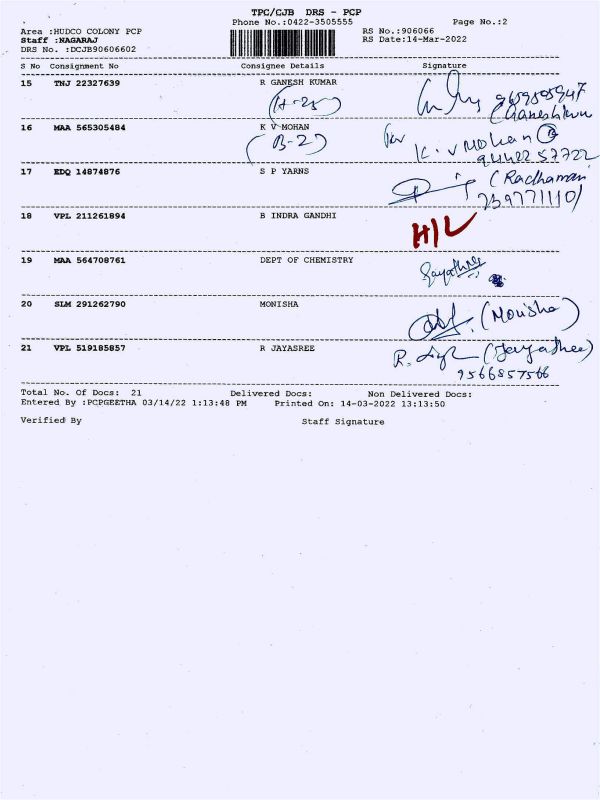 TPC/CJB DRS - PCP
Phone No.:0422-3505555 Page No.:2
Area :HUDCO COLONY PCP RS No.:906066
Staff :NAGARAJ RS Date:14-Mar-2022
DRS No. :DCJB90606602
S No Consignment No Consignee Details Signature
15 TNJ 22327639 R GANESH KUMAR
(H-25)
16 MAA 565305484 K V MOHAN for K. V Mohan
(B-2) 9442257722
17 EDQ 14874876 S P YARNS
18 VPL 211261894 B INDRA GANDHI H/L
19 MAA 564708761 DEPT OF CHEMISTRY Gayathree
20 SLM 291262790 MONISHA (Monisha)
21 VPL 519185857 R JAYASREE R. (Jayashree)
9566857566
Total No. Of Docs: 21 Delivered Docs: Non Delivered Docs:
Entered By :PCPGEETHA 03/14/22 1:13:48 PM Printed On: 14-03-2022 13:13:50
Verified By Staff Signature